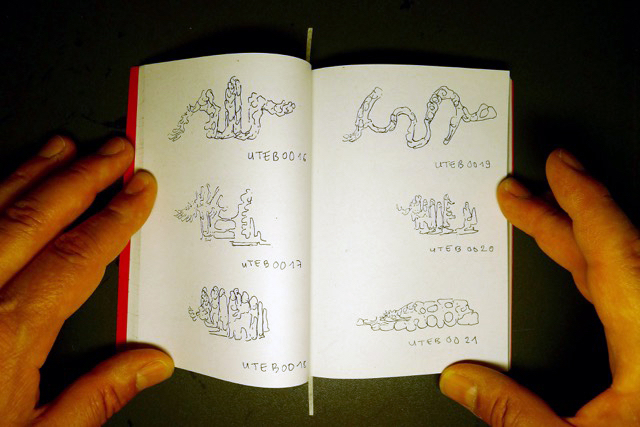 UTEB0016
UTEB0017
UTEB0018
UTEB0019
UTEB0020
UTEB0021